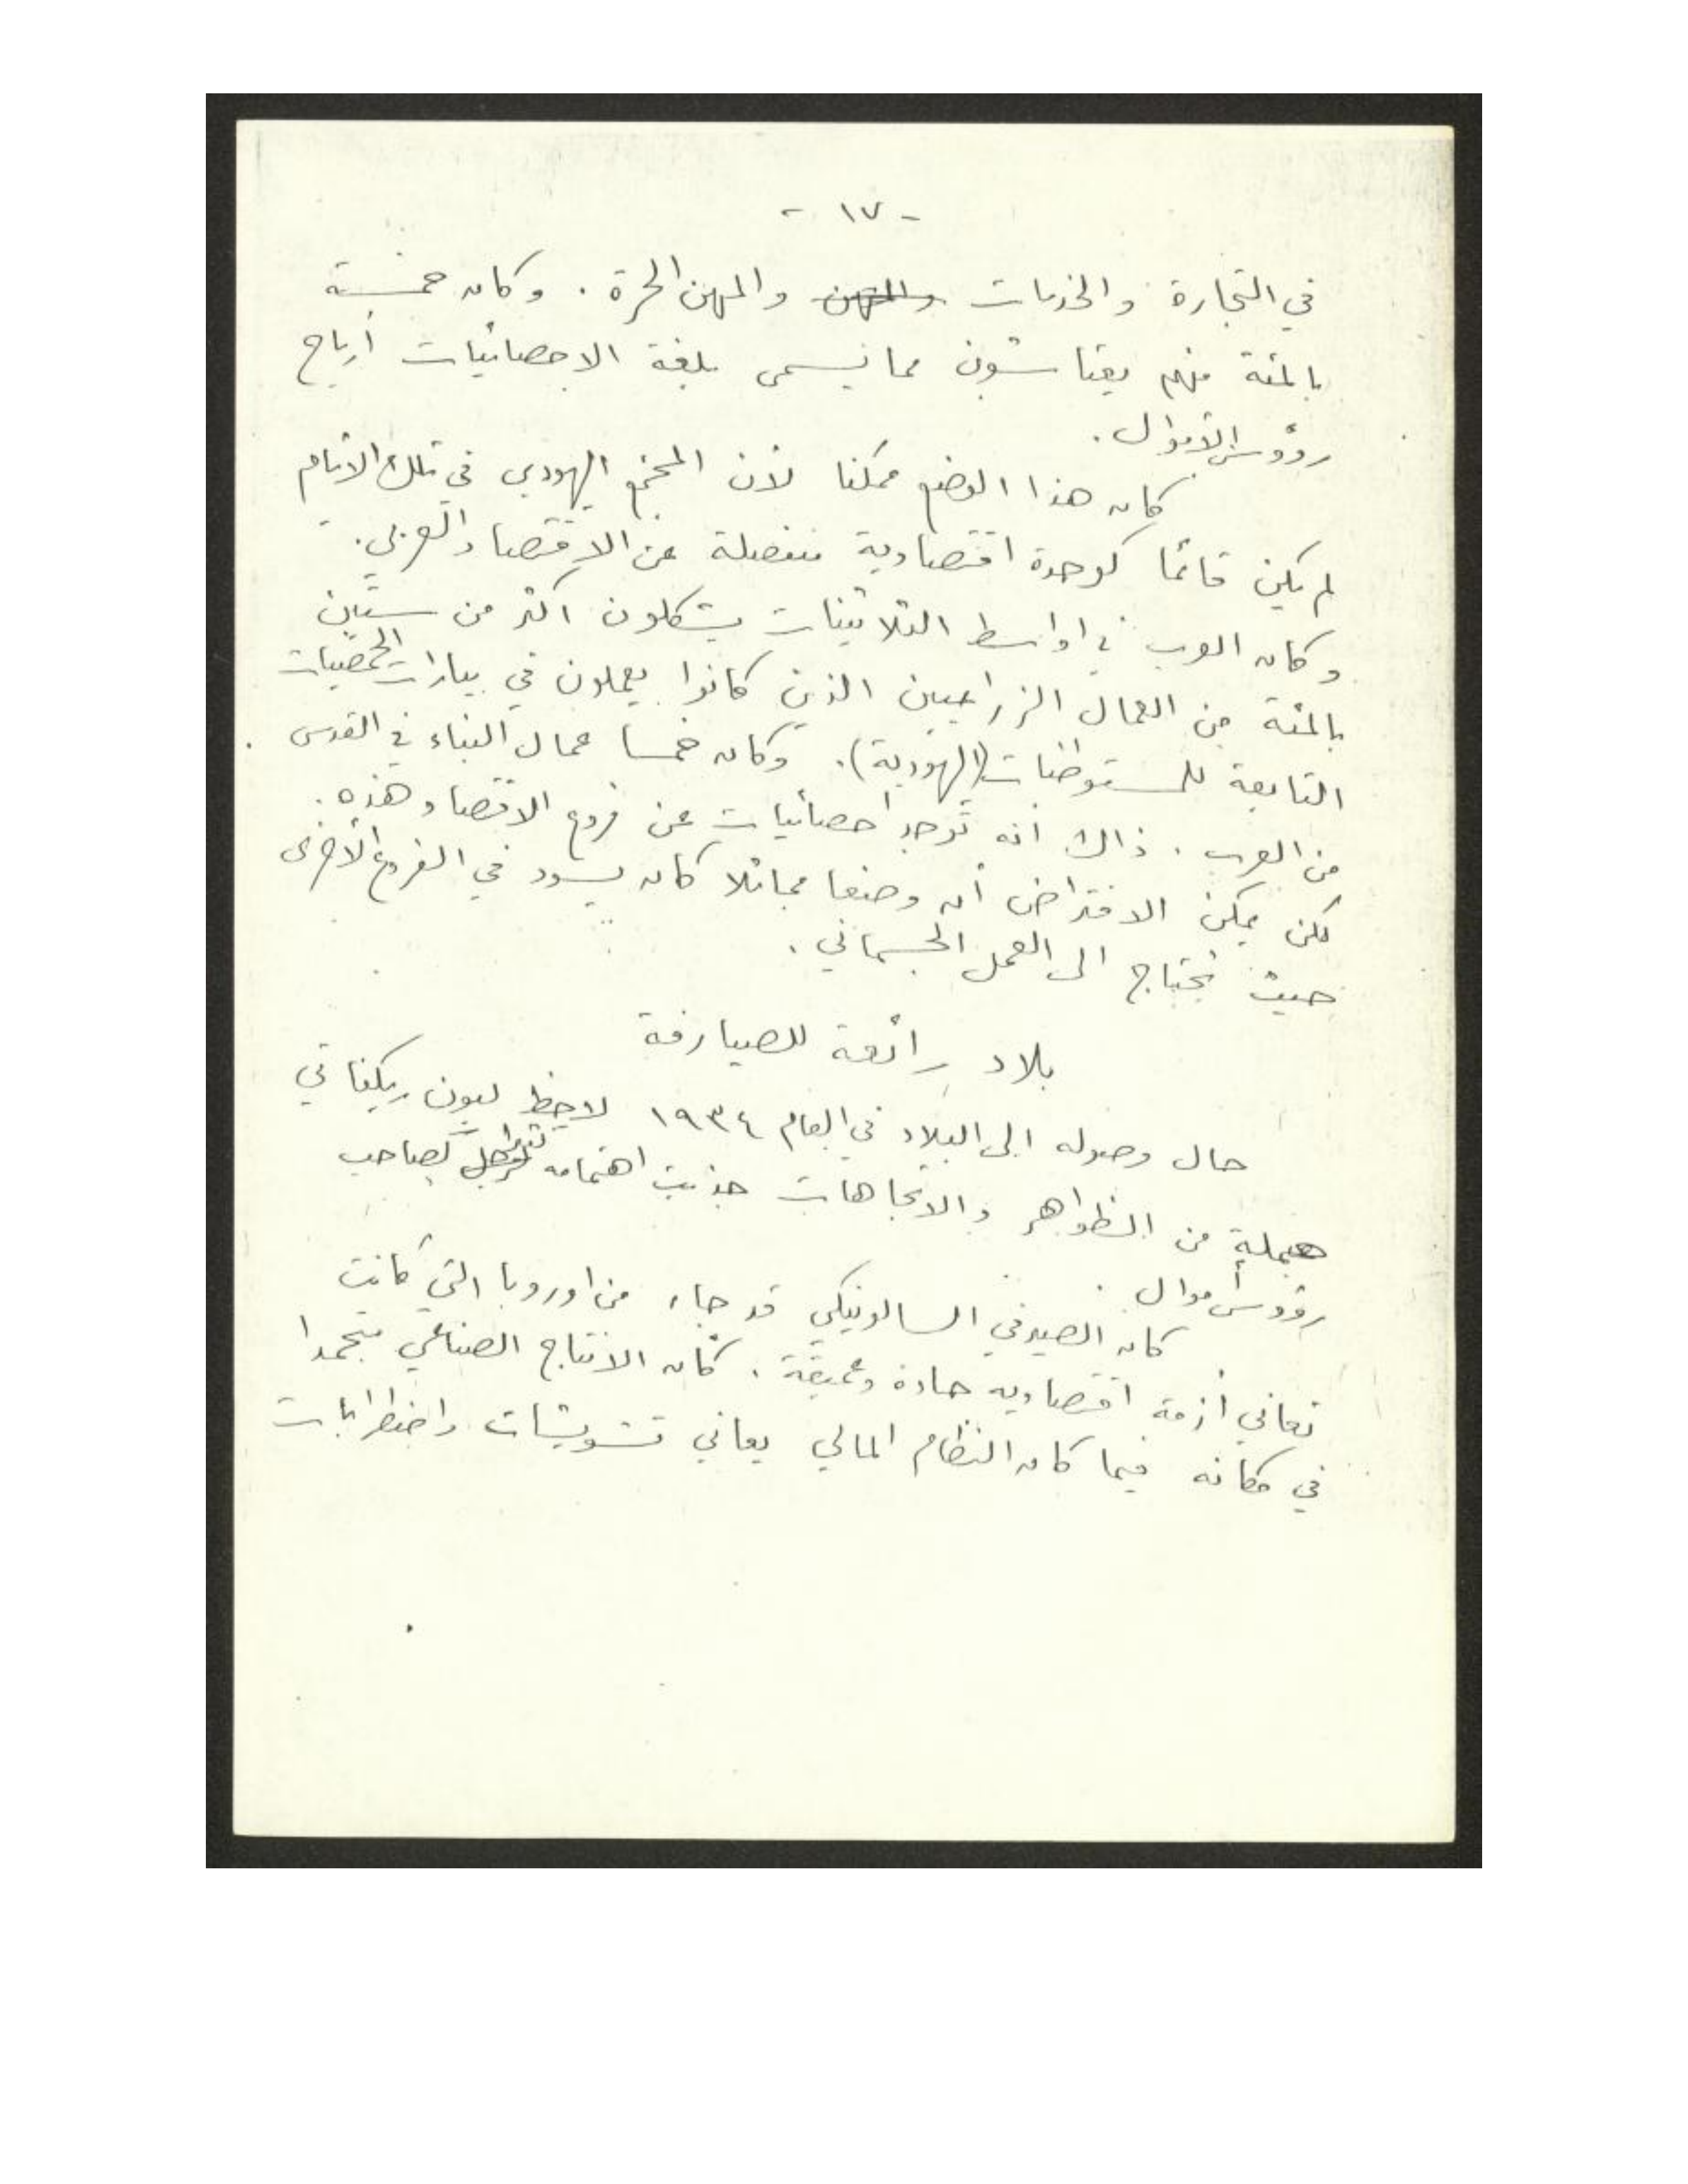 - ١٧ -
في التجارة والخدمات والمهن والمهن الحرة . وكان خمسة
بالمئة منهم يعتاشون مما يسمى بلغة الاحصائيات أرباح
رؤوس الأموال .
كان هذا الوضع ممكنا لأن المجتمع اليهودي في تلك الأيام
لم يكن قائما كوحدة اقتصادية منفصلة عن الاقتصاد العربي .
وكان العرب في اواسط الثلاثينات يشكلون اكثر من ستين
بالمئة من العمال الزراعيين الذين كانوا يعملون في بيارات الحمضيات
التابعة للمستوطنات (اليهودية) . وكان خمسا عمال البناء في القدس
من العرب . ذاك انه توجد احصائيات عن فروع الاقتصاد هذه .
لكن يمكن الافتراض أن وضعا مماثلا كان يسود في الفروع الأخرى
حيث تحتاج الى العمل الجسماني .
بلاد رائعة للصيارفة
حال وصوله الى البلاد في العام ١٩٣٤ لاحظ ليون ريكناتي
جملة من الظواهر والاتجاهات جذبت اهتمامه كرجل كصاحب
رؤوس أموال .
كان الصيرفي السالونيكي قد جاء من اوروبا التي كانت
تعاني أزمة اقتصادية حادة وعميقة . كان الانتاج الصناعي متجمدا
في مكانه فيما كان النظام المالي يعاني تشويشات واضطرابات